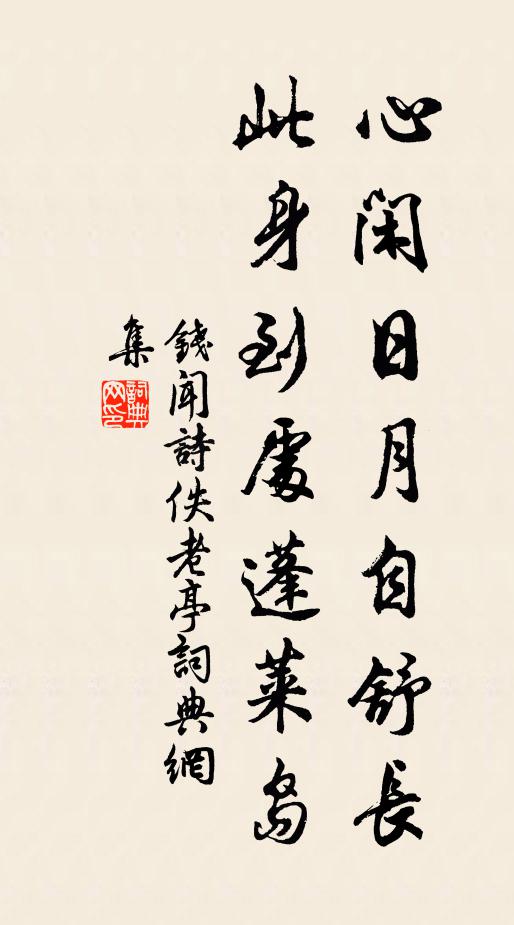 心閑日月自舒長
此身到處蓬萊島
錢聞詩佚老亭詞典網
集
詞典
网印